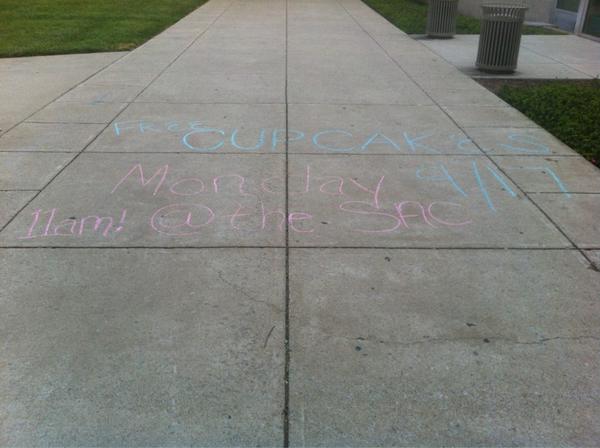 FREE CUPCAKES
Monday 9/17
11am! @ the SAC